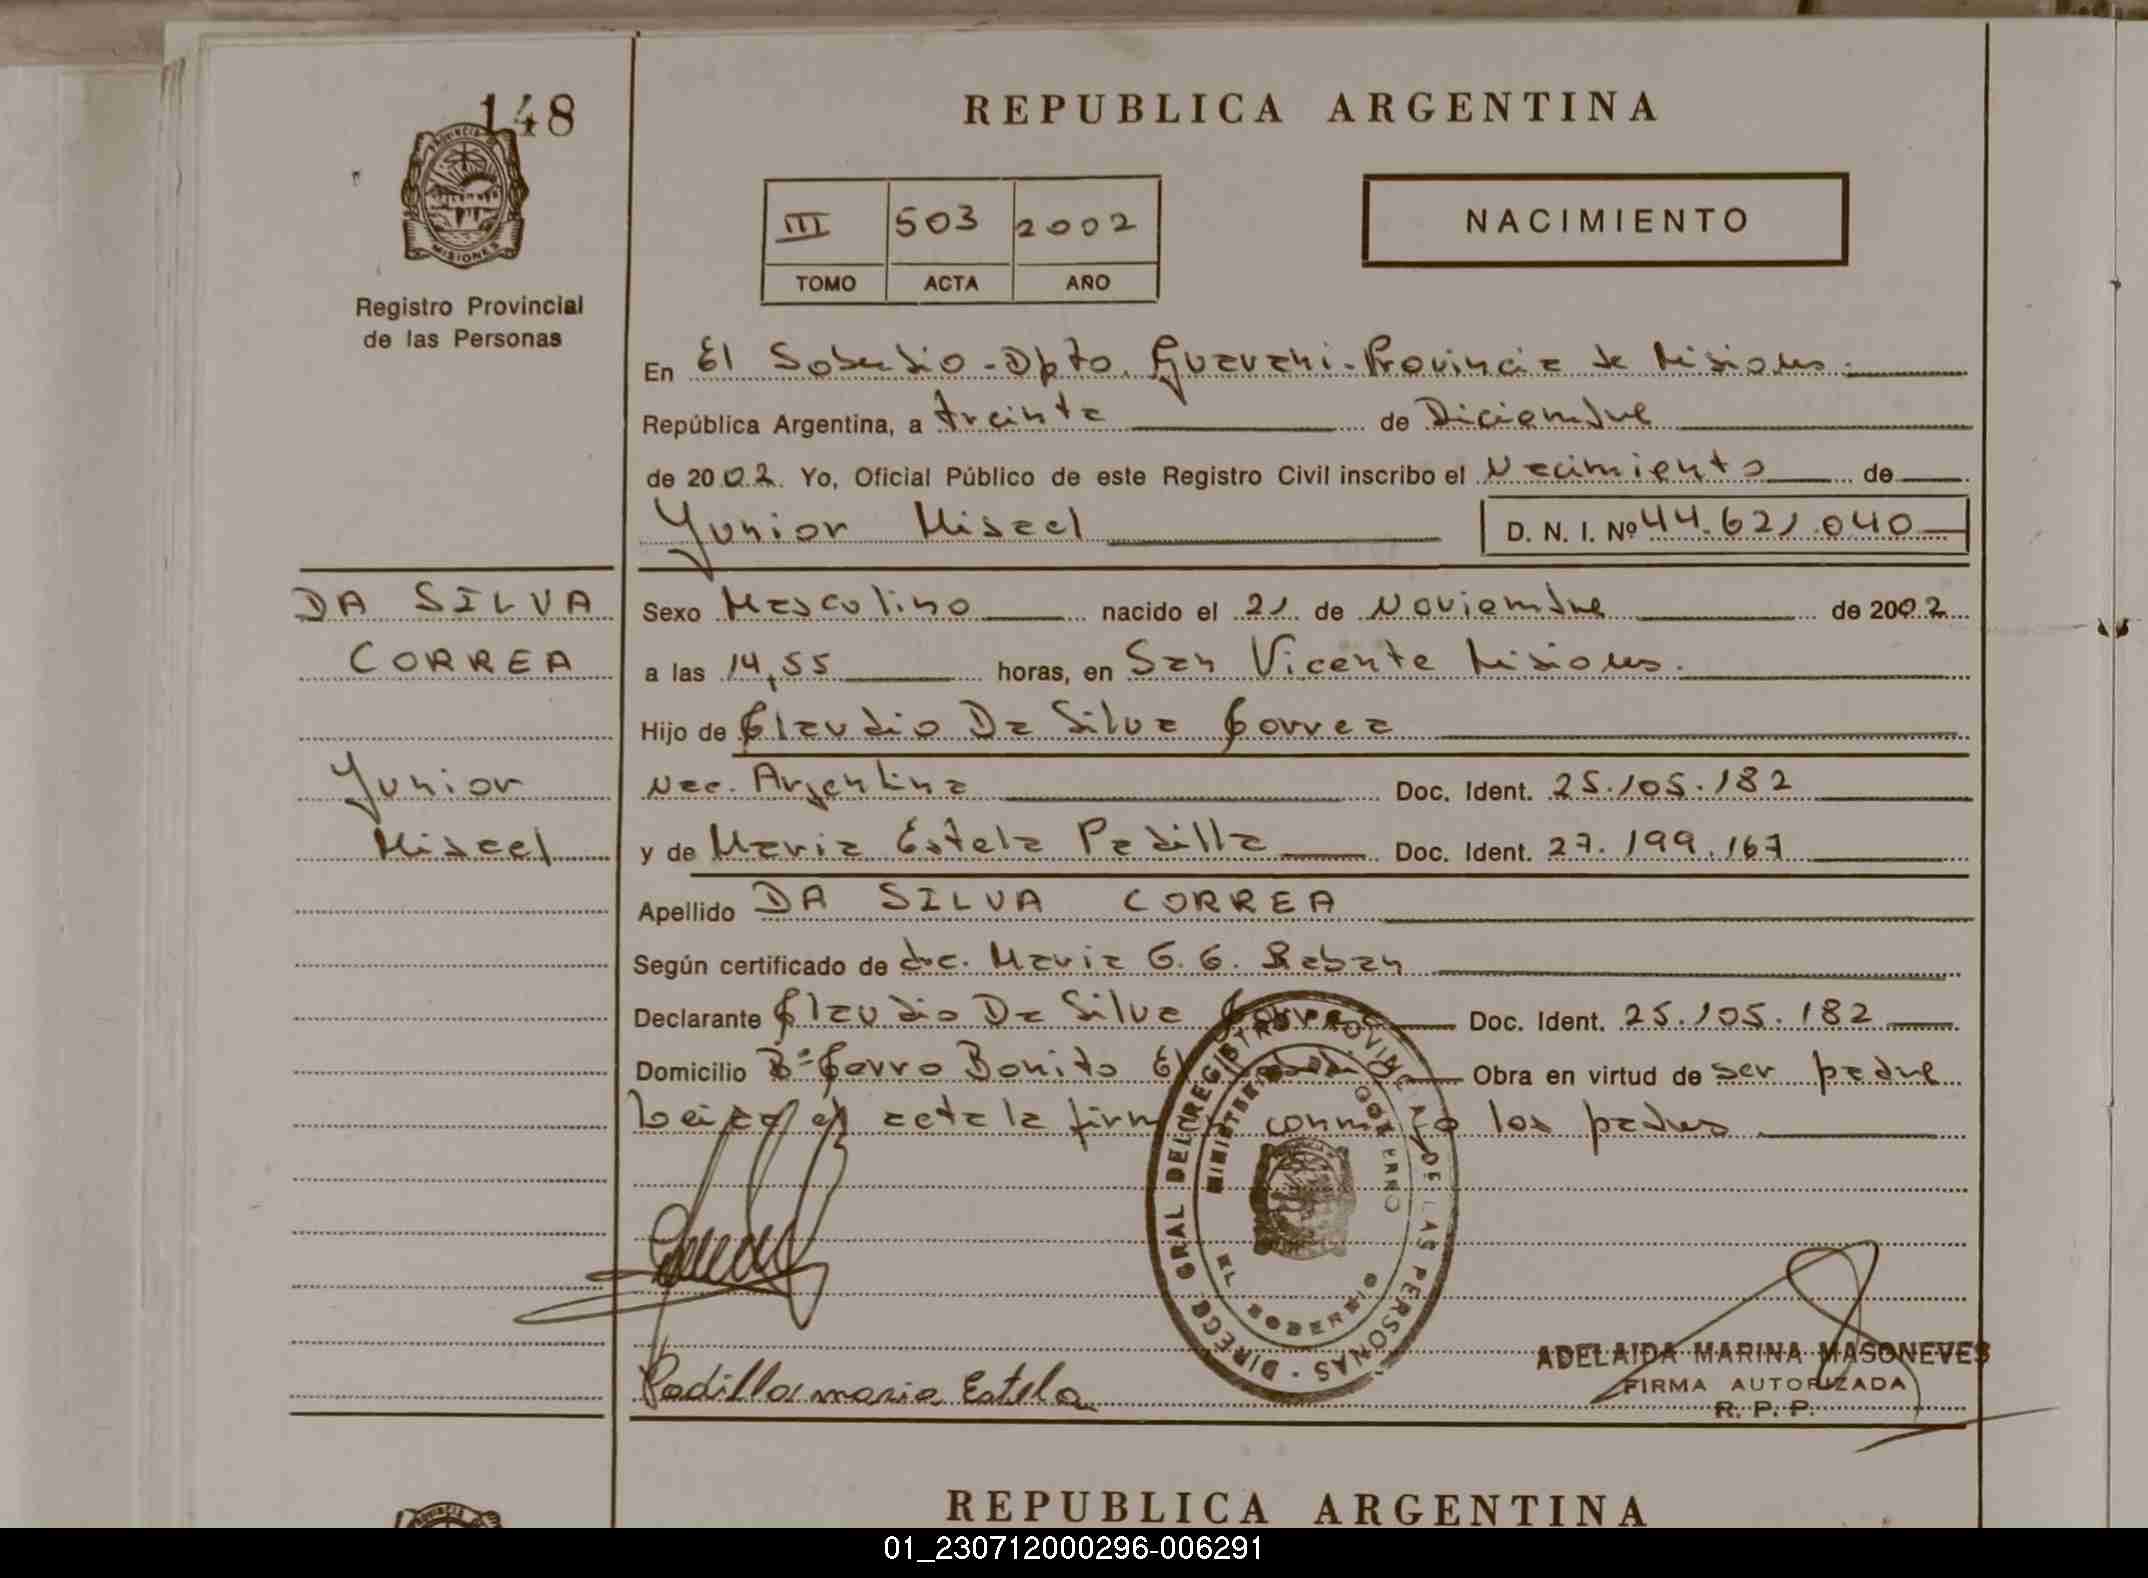 148
REPUBLICA ARGENTINA
PROVINCIA MISIONES
Registro Provincial
de las Personas
III 503 2002
TOMO ACTA AÑO
NACIMIENTO
En El Soberbio - Dpto. Guarani - Provincia de Misiones.
República Argentina, a treinta de Diciembre
de 2002. Yo, Oficial Público de este Registro Civil inscribo el Nacimiento de
Yunior Misael D. N. I. Nº 44.621.040
DA SILVA
CORREA
Yunior
Misael
Sexo Masculino nacido el 21 de Noviembre de 2002
a las 14,55 horas, en San Vicente Misiones.
Hijo de Claudio Da Silva Correa
Nac. Argentina Doc. Ident. 25.105.182
y de Maria Estela Padilla Doc. Ident. 27.199.167
Apellido DA SILVA CORREA
Según certificado de doc. Maria G. G.
Declarante Claudio Da Silva Correa Doc. Ident. 25.105.182
Domicilio Bº Cerro Bonito El Obra en virtud de ser padre
Leida el acta la firman conmigo los padres
DIRECC GRAL DEL REGISTRO PROVINCIAL DE LAS PERSONAS
MINISTERIO GOBIERNO
EL SOBERBIO
Padilla maria Estela
ADELAIDA MARINA MASONEVES
FIRMA AUTORIZADA
R. P. P.
REPUBLICA ARGENTINA
01_230712000296-006291